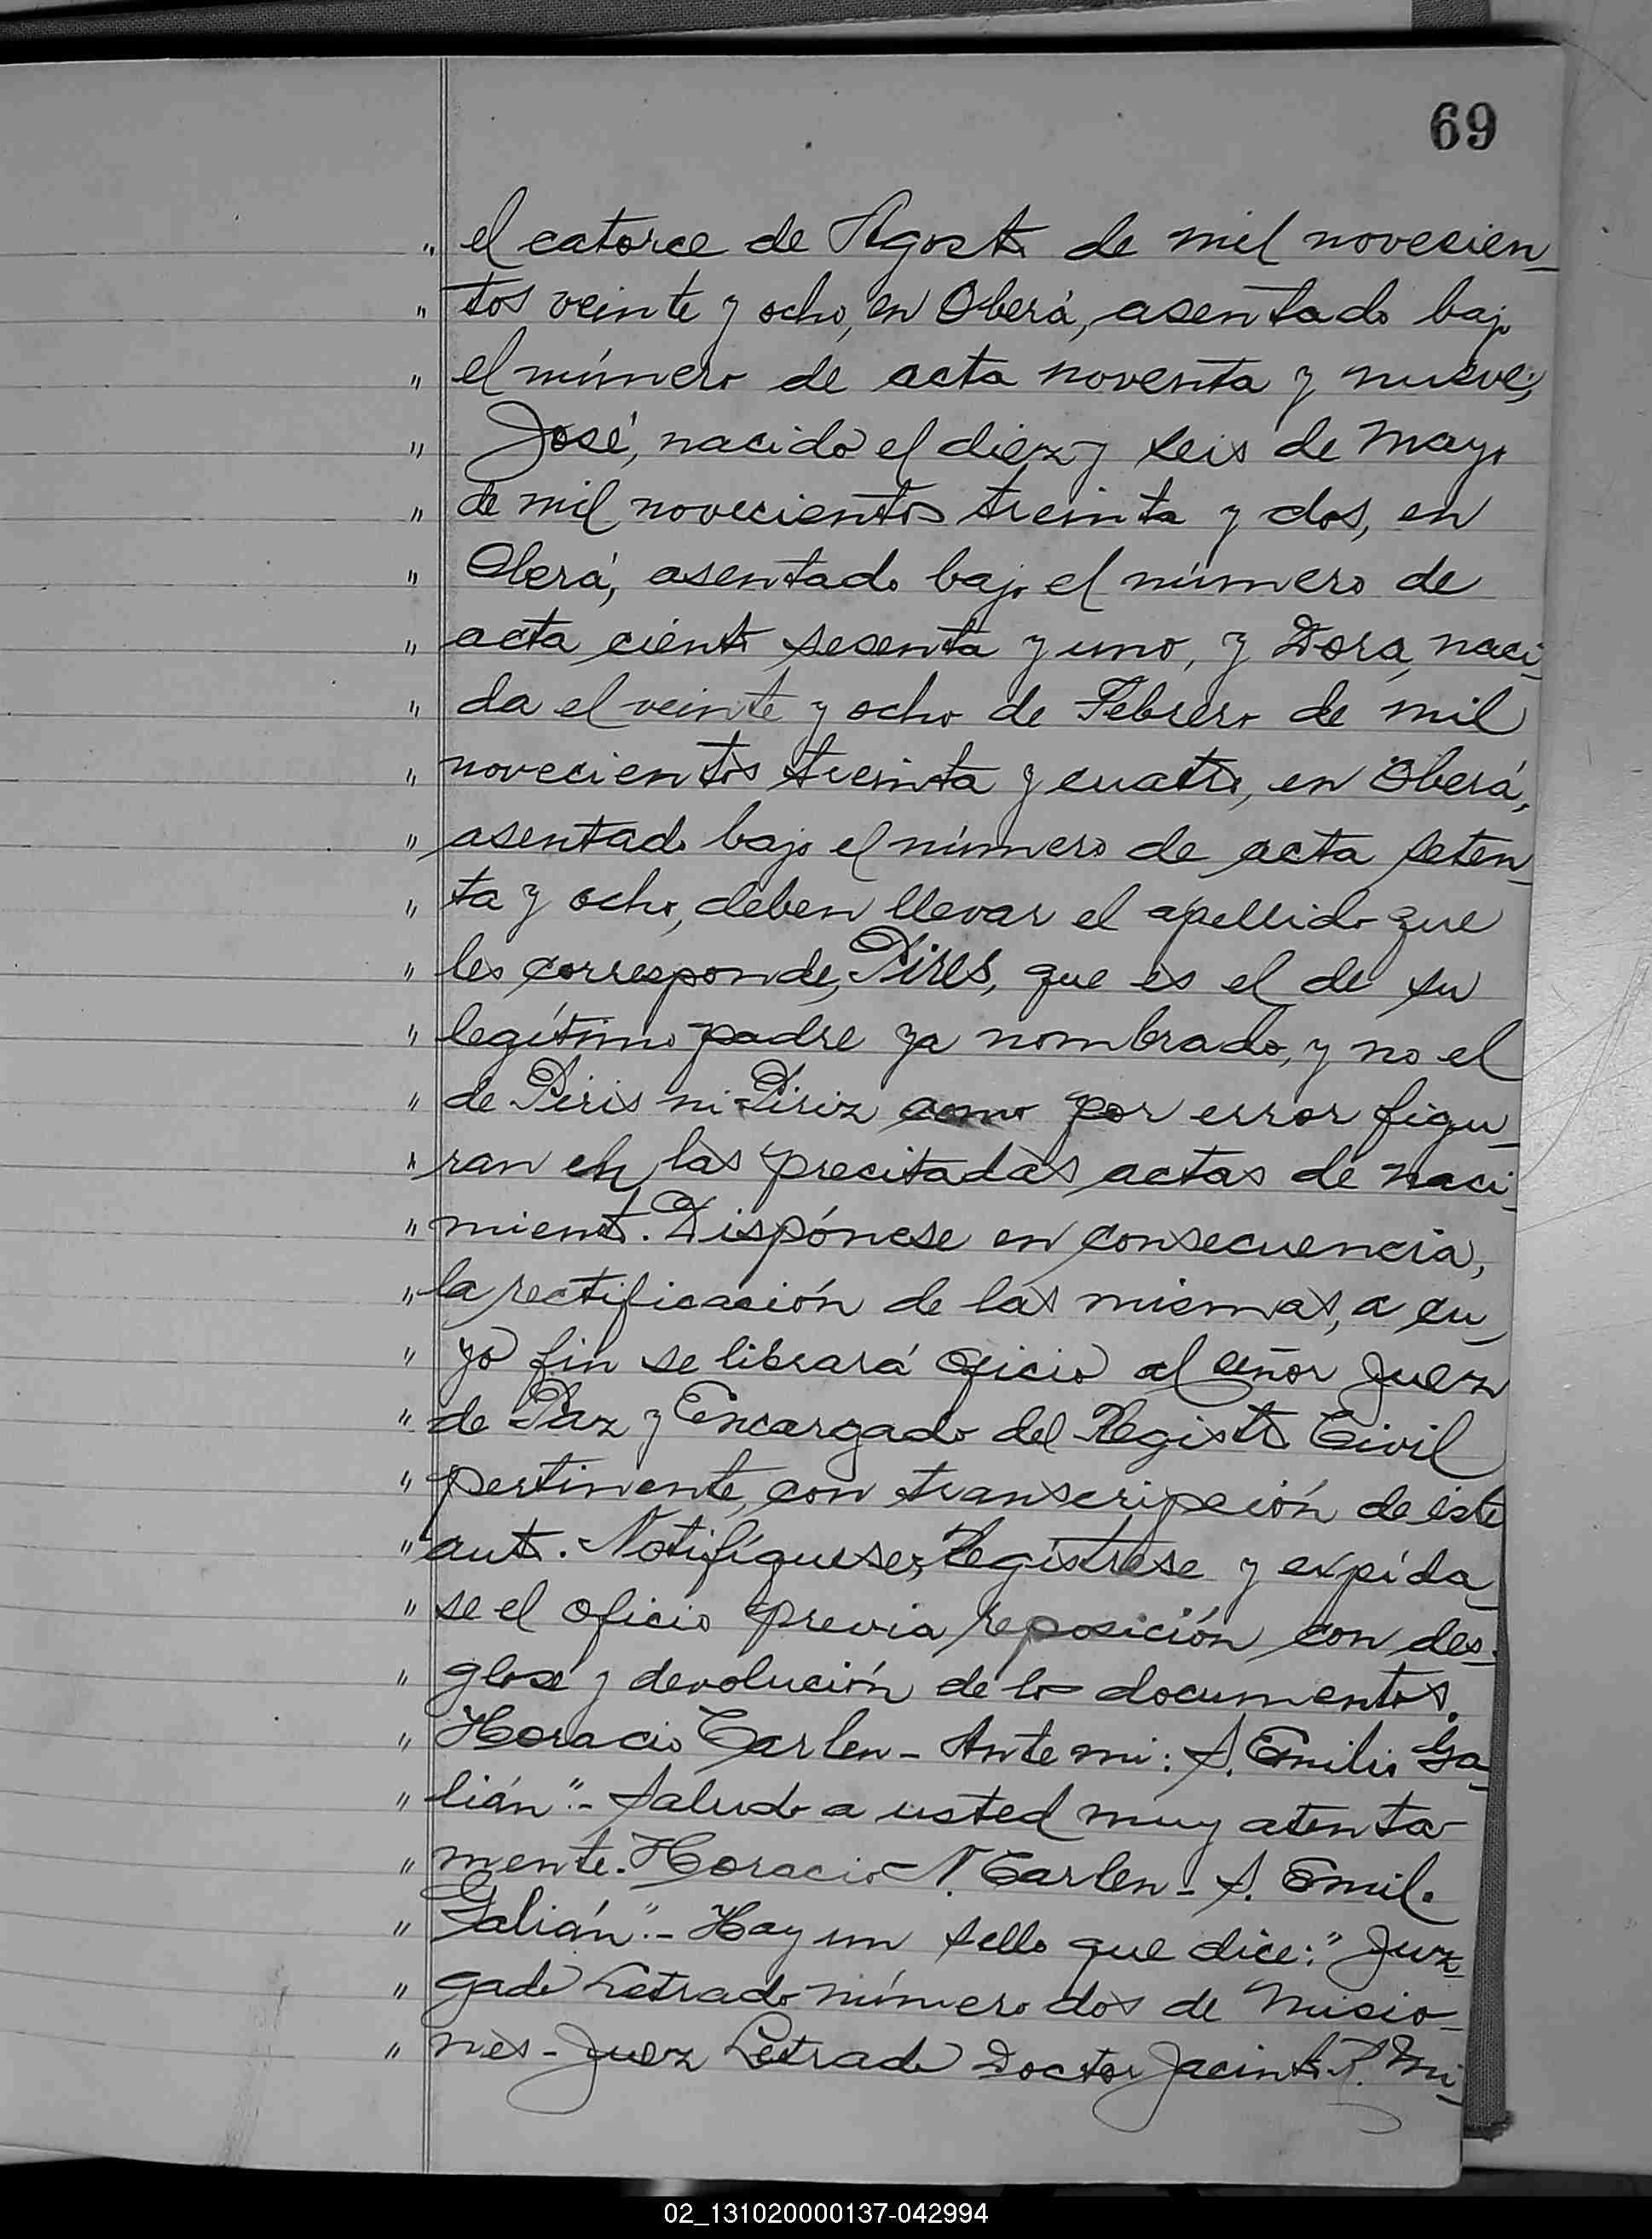 69
" el catorce de Agosto de mil novecien-
" tos veinte y ocho, en Oberá, asentado bajo
" el número de acta noventa y nueve;
" José, nacido el diez y seis de Mayo
" de mil novecientos treinta y dos, en
" Oberá, asentado bajo el número de
" acta ciento sesenta y uno, y Dora, naci-
" da el veinte y ocho de Febrero de mil
" novecientos treinta y cuatro, en Oberá,
" asentado bajo el número de acta seten-
" ta y ocho, deben llevar el apellido que
" les corresponde, Pires, que es el de su
" legítimo padre ya nombrado, y no el
" de Piris ni Piriz como por error figu-
" ran en las precitadas actas de naci-
" miento. Dispónese en consecuencia,
" la rectificación de las mismas, a cu-
" yo fin se librará oficio al señor Juez
" de Paz y Encargado del Registro Civil
" pertinente, con transcripción de éste
" auto. Notifíquese, Regístrese y expída-
" se el oficio previa reposición con des-
" glose y devolución de los documentos.
" Horacio Carlen - Ante mi: S. Emilio Ga-
" lián".- Saludo a usted muy atenta-
" mente. Horacio N. Carlen - S. Emilio
" Galián".- Hay un sello que dice: "Juz-
" gado Letrado número dos de Misio-
" nes - Juez Letrado Doctor Jacinto R. Mi-
02_131020000137-042994